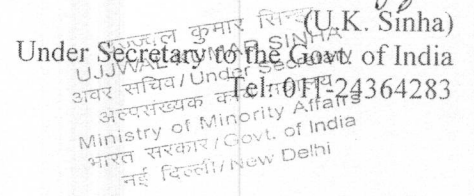 (U.K. Sinha)
Under Secretary to the Govt. of India
Tel: 011-24364283
उज्ज्वल कुमार सिन्हा
UJJWAL KUMAR SINHA
अवर सचिव/Under Secretary
अल्पसंख्यक कार्य मंत्रालय
Ministry of Minority Affairs
भारत सरकार/Govt. of India
नई दिल्ली/New Delhi